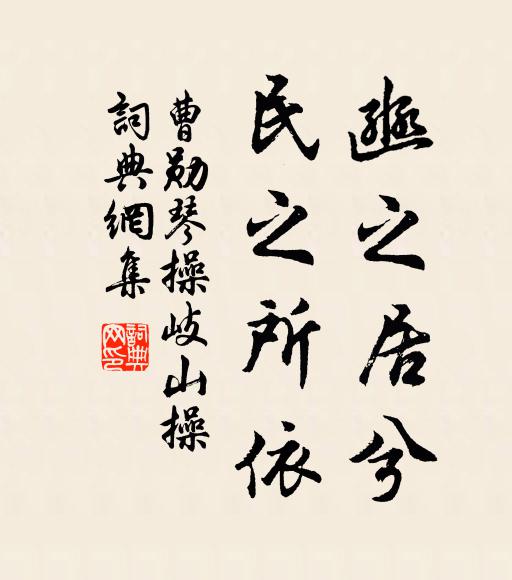 豳之居兮
民之所依
曹勛琴操岐山操
詞典網集
詞典网印